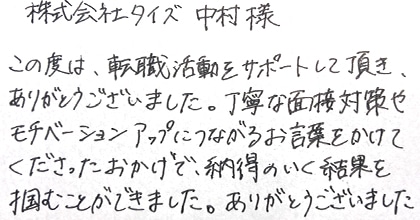 株式会社タイズ 中村様
この度は、転職活動をサポートして頂き、
ありがとうございました。丁寧な面接対策や
モチベーションアップにつながるお言葉をかけて
くださったおかげで、納得のいく結果を
掴むことができました。ありがとうございました